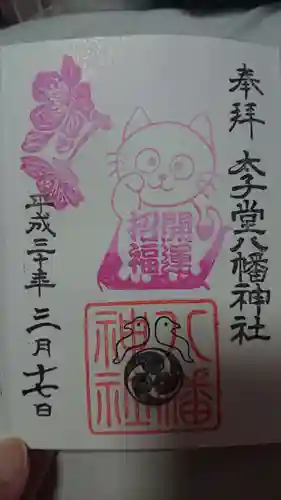 奉拝
太子堂八幡神社
開運
招福
八幡
神社
平成三十年三月十七日